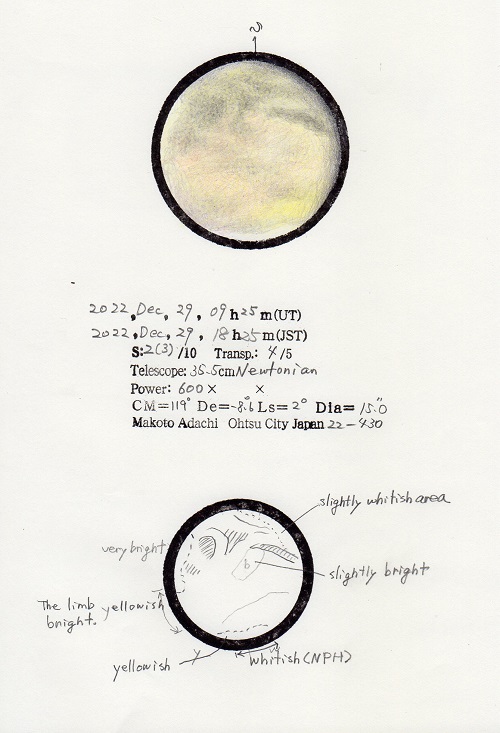 S
2022, Dec, 29, 09h25m(UT)
2022, Dec, 29, 18h25m(JST)
S:2(3)/10 Transp.: 4/5
Telescope: 35.5cm Newtonian
Power: 600× ×
CM=119° De=-8.°6 Ls=2° Dia=15.″0
Makoto Adachi Ohtsu City Japan 22-430
slightly whitish area
very bright
slightly bright
The limb yellowish
bright.
yellowish
Y
whitish (NPH)